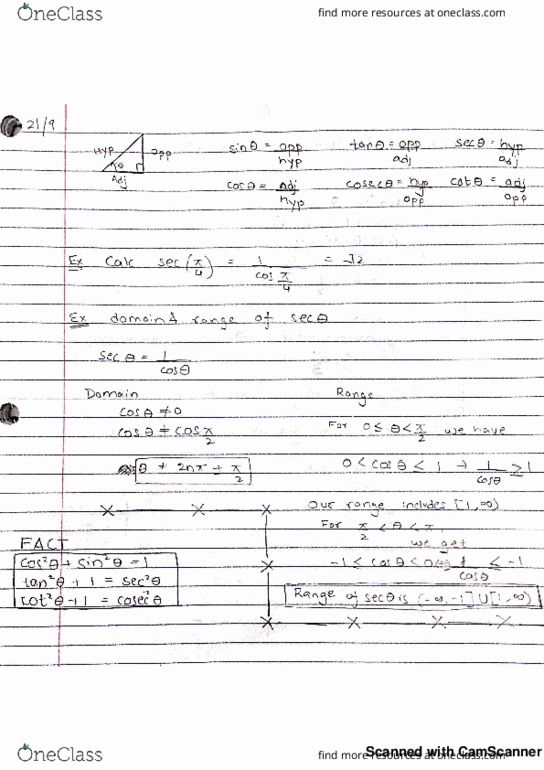 OneClass
find more resources at oneclass.com
21/9
Hyp
opp
θ
Adj
sinθ = opp/hyp
tanθ = opp/adj
secθ = hyp/adj
cosθ = adj/hyp
cosecθ = hyp/opp
cotθ = adj/opp
Ex Calc sec(π/4) = 1/cos π/4 = √2
Ex domain & range of secθ
secθ = 1/cosθ
Domain
cosθ ≠ 0
cosθ ≠ cos π/2
θ ≠ 2nπ ± π/2
Range
For 0 ≤ θ < π/2 we have
0 < cosθ < 1 → 1/cosθ ≥ 1
Our range includes [1, ∞)
For π/2 < θ < π,
we get
-1 ≤ cosθ < 0 1/cosθ ≤ -1
Range of secθ is (-∞, -1] U [1, ∞)
FACT
cos²θ + sin²θ = 1
tan²θ + 1 = sec²θ
cot²θ + 1 = cosec²θ
OneClass
find more resources at oneclass.com
Scanned with CamScanner